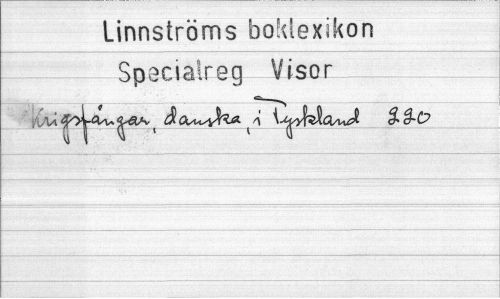 Linnströms boklexikon
Specialreg Visor
Krigsfångar, danska, i Tyskland 220